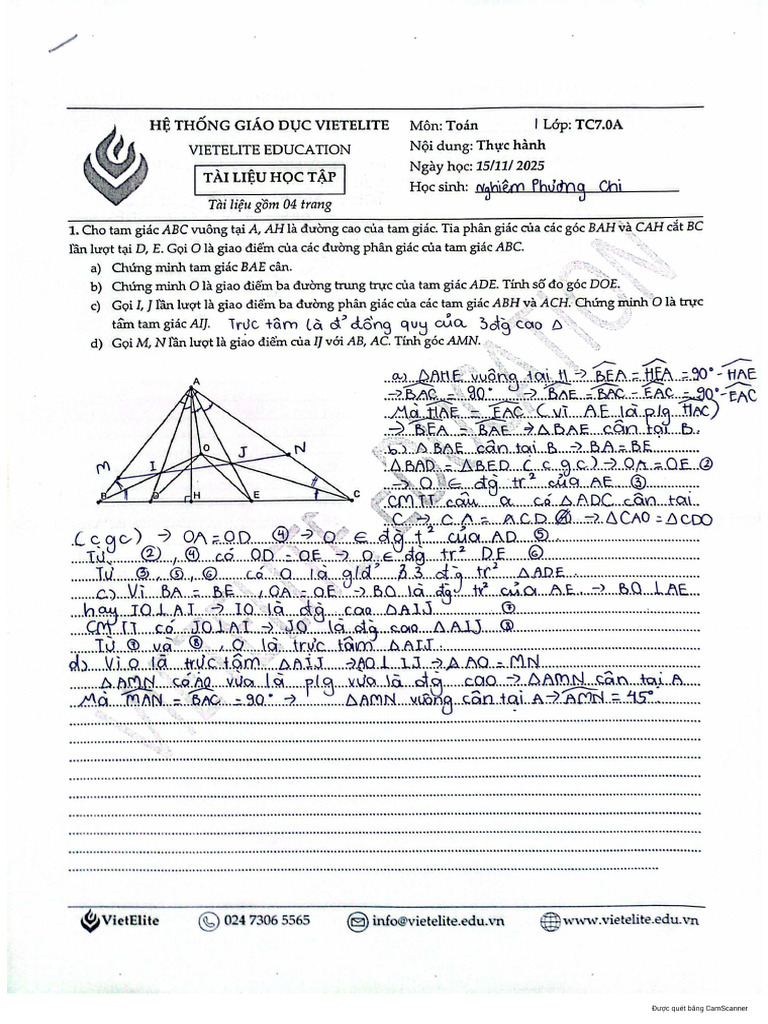 HỆ THỐNG GIÁO DỤC VIETELITE
VIETELITE EDUCATION
TÀI LIỆU HỌC TẬP
Tài liệu gồm 04 trang
Môn: Toán | Lớp: TC7.0A
Nội dung: Thực hành
Ngày học: 15/11/ 2025
Học sinh: Nghiêm Phương Chi
1. Cho tam giác ABC vuông tại A, AH là đường cao của tam giác. Tia phân giác của các góc BAH và CAH cắt BC
lần lượt tại D, E. Gọi O là giao điểm của các đường phân giác của tam giác ABC.
a) Chứng minh tam giác BAE cân.
b) Chứng minh O là giao điểm ba đường trung trực của tam giác ADE. Tính số đo góc DOE.
c) Gọi I, J lần lượt là giao điểm ba đường phân giác của các tam giác ABH và ACH. Chứng minh O là trực
tâm tam giác AIJ. Trực tâm là đ² đồng quy của 3 đg cao Δ
d) Gọi M, N lần lượt là giao điểm của IJ với AB, AC. Tính góc AMN.
A
O
M I J N
B D H E C
a) ΔAHE vuông tại H → BEA = HEA = 90° - HAE
→ BAC = 90° → BAE = BAC - EAC = 90° - EAC
Mà HAE = EAC (vì AE là plg HAC)
→ BEA = BAE → ΔBAE cân tại B.
b) ΔBAE cân tại B → BA = BE
ΔBAD = ΔBED (c.g.c) → OA = OE ②
→ O ∈ đg tr² của AE ③
CMTT câu a có ΔADC cân tại
C → CA = ACD → ΔCAO = ΔCDO
(cgc) → OA = OD ④ → O ∈ đg t² của AD ⑤
Từ ②, ④ có OD = OE → O ∈ đg tr² DE ⑥
Từ ③, ⑤, ⑥ có O là g/đ² 3 đg tr² ΔADE
c) Vì BA = BE, OA = OE → BO là đg tr² của AE → BO ⊥ AE
hay IO ⊥ AI → IO là đg cao ΔAIJ ⑦
CMTT có JO ⊥ AI → JO là đg cao ΔAIJ ⑧
Từ ⑦ và ⑧, O là trực tâm ΔAIJ.
d) Vì O là trực tâm ΔAIJ → AO ⊥ IJ → ΔAO = MN
ΔAMN có AO vừa là plg vừa là đg cao → ΔAMN cân tại A
Mà MAN = BAC = 90° → ΔAMN vuông cân tại A → AMN = 45°
VIETELITE EDUCATION
VietElite
024 7306 5565
info@vietelite.edu.vn
www.vietelite.edu.vn
Được quét bằng CamScanner